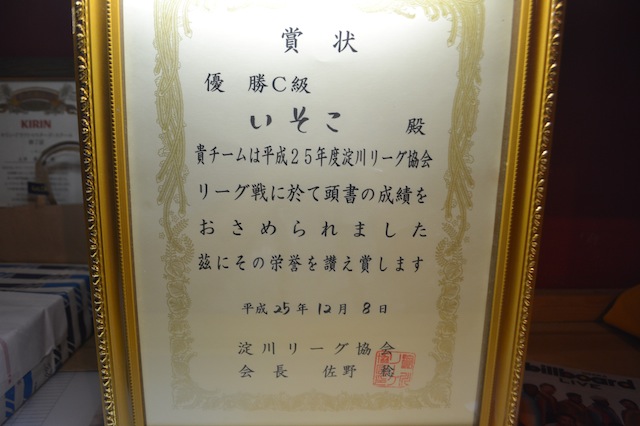 賞状
優勝C級
いそこ 殿
貴チームは平成25年度淀川リーグ協会
リーグ戦に於て頭書の成績を
おさめられました
茲にその栄誉を讃え賞します
平成25年12月8日
淀川リーグ協会
会長 佐野 稔
KIRIN
billboard
LIVE